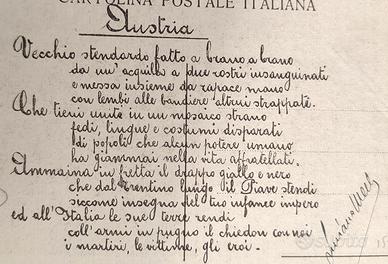 CARTOLINA POSTALE ITALIANA
Austria
Vecchio stendardo fatto a brano a brano
da un'aquilla a due rostri insanguinati
e messa insieme da rapace mano
con lembi alle bandiere altrui strappate.
Che tieni unite in un mosaico strano
fedi, lingue e costumi disparati
di popoli che alcun potere umano
ha giammai nella vita affratellati.
Ammaina in fretta il drappo giallo e nero
che dal Trentino lungo il Piave stendi
siccome insegna pel tuo infame impero
ed all'Italia le sue terre rendi
coll'armi in pugno il chiedon con noi
i martiri, le vittime, gli eroi.